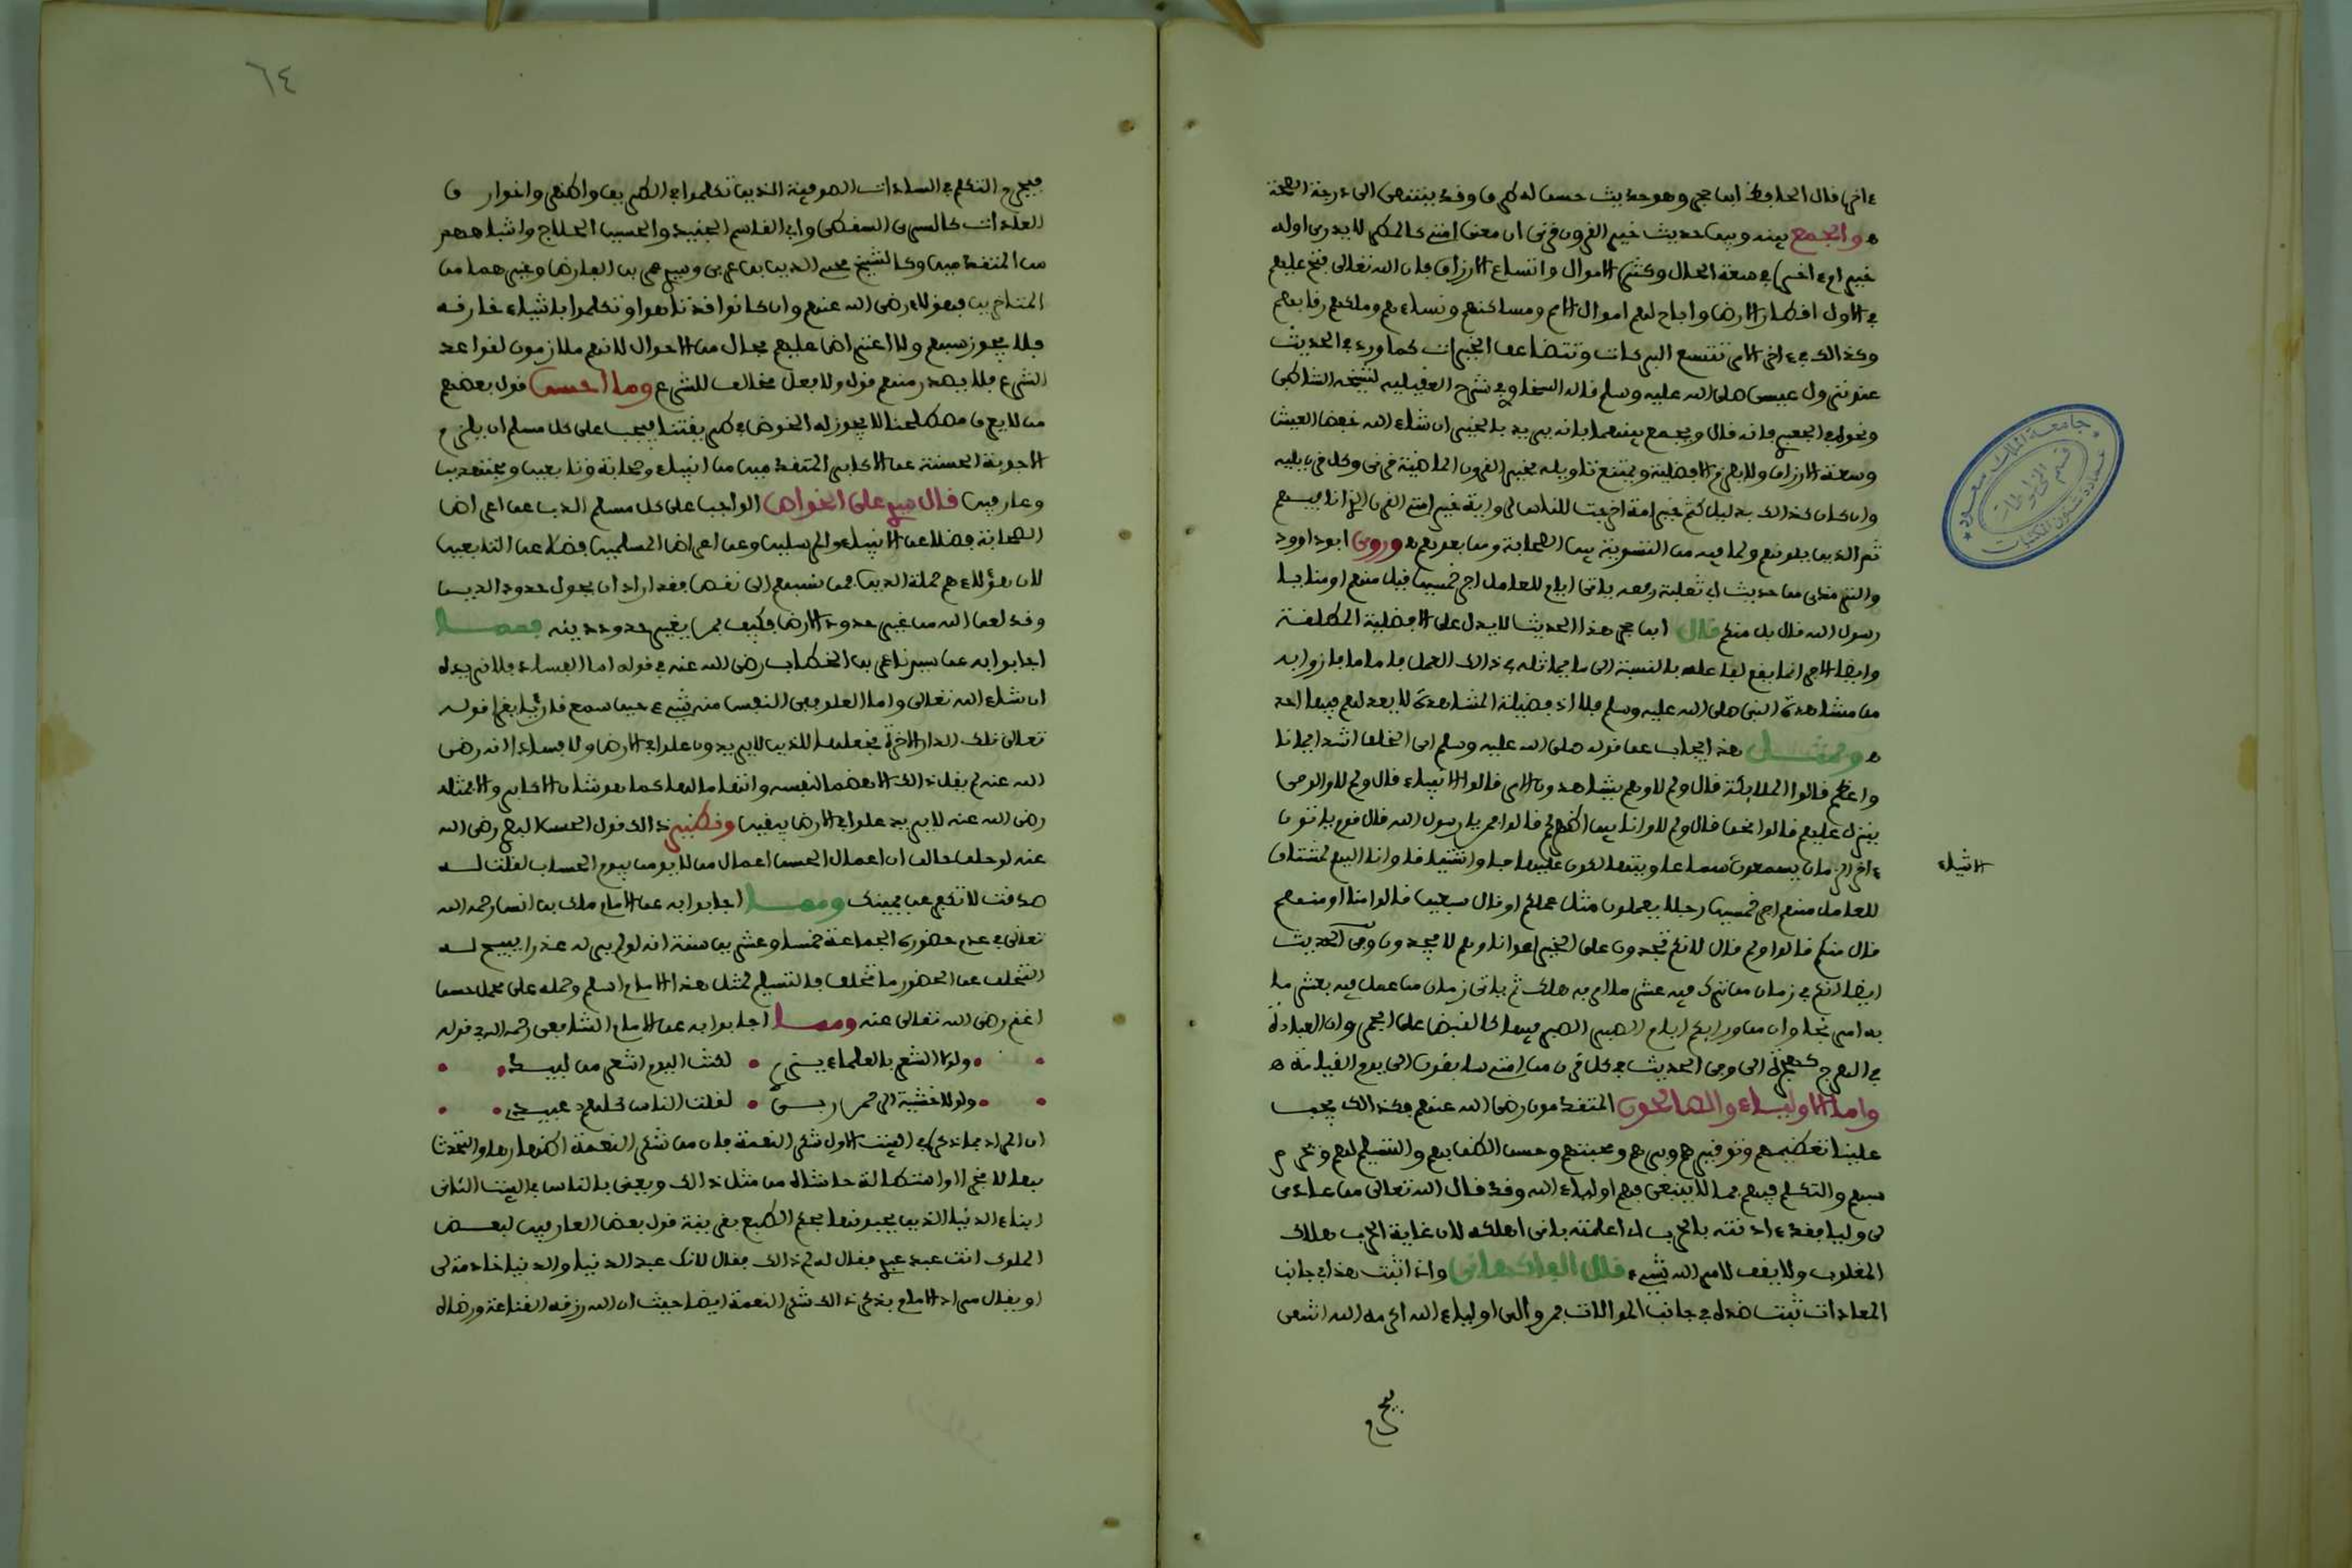 ءاخرها قال الحافظ ابن حجر وهو حديث حسن له طرق وقد ينتهى الى درجة الصحة
ه والجمع بينه وبين حديث خير القرون قرنى ان معنى امتى كالمطر لا يدرى اوله
خير ام ءاخره اي في سعة الحال وكثرة الاموال واتساع الارزاق فان الله تعالى فتح عليهم
في الاول اقطار الارض واباح لهم اموال الامم ومساكنهم ونساءهم وملكهم رقابهم
وكذالك في ءاخر الامر تتسع البركات وتتضاعف الخيرات كما ورد في الحديث
عند نزول عيسى صلى الله عليه وسلم قاله السخاوي في شرح العقيلية لشيخه الشاطبى
ونحوه للجعبري فانه قال ويجمع بينهما بانه يريد بالخير ان شاء الله خفض العيش
وسعة الارزاق ولا يلزم الافضلية ويمتنع تاويله بخير القرون الماضية قرنى وكل قرن يليه
وان كان كذالك بدليل كنتم خير امة اخرجت للناس لرواية خير امتى القرن الذي انا فيهم
ثم الذين يلونهم ولما فيه من التسوية بين الصحابة ومن بعدهم ه وروى ابو داوود
والترمذى من حديث ابي ثعلبة رفعه ياتى ايام للعامل اجر خمسين قيل منهم او منا يا
رسول الله قال بل منكم قال ابن حجر هذا الحديث لا يدل على الافضلية المطلقة
وايضا الاجر انما يقع تفاضله بالنسبة الى ما يماثله في ذالك العمل فاما ما فاز وا به
من مشاهدة النبى صلى الله عليه وسلم فلا اذ فضيلة المشاهدة لا يعدلهم فيها احد
ه وبمثل هذا يجاب عن قوله صلى الله عليه وسلم اي الخلق اشد ايمانا
واعظم قالوا الملايكة قال ولم لا وهم يشاهدون الامر قالوا الانبياء قال ولم لا والوحى
ينزل عليهم قالوا نحن قال ولم لا وانا بين اظهركم قالوا فمن يا رسول الله قال قوم ياتون
ءاخر الزمان يسمعون
الاشياء
للعامل منهم اجر خمسين رجلا يعملون مثل عملكم او قال سبعين قالوا منا او منهم
قال منكم قالوا ولم قال لانكم تجدون على الخير اعوانا وهم لا يجدون وفى الحديث
ايضا انكم في زمان من ترك فيه عشر ما امر به هلك ثم ياتى زمان من عمل فيه بعشر ما
به امر نجا وان من ورايكم ايام الصبر الصبر فيها كالقبض على الجمر وان العبادة
في الهرج كهجرة الى وفى الحديث في كل قرن من امتى سابقون الى يوم القيامة ه
واما الاولياء والصالحون المتقدمون رضى الله عنهم فكذالك يجب
علينا تعظيمهم وتوقيرهم وبرهم ومحبتهم وحسن الظن بهم والتسليم لهم ونحرم
سبهم والتكلم فيهم بما لا ينبغى فهم اولياء الله وقد قال الله تعالى من عادى
لى وليا فقد ءاذنته بالحرب اي اعلمته بانى اهلكه لان غاية الحرب هلاك
المغلوب ولا يقف لامر الله شيء قال الفاكهانى واذا ثبت هذا في جانب
المعادات ثبت ضده في جانب الموالات فمن والى اولياء الله اكرمه الله انتهى
فيحرم
٦٤
فيحرم التكلم في السادات الصوفية الذين تكلموا في الطريق واظهروا خوارق
العادات كالسري السقطى وابي القاسم الجنيد والحسين الحلاج واشباههم
من المتقدمين وكالشيخ محيي الدين بن عربى وسيدي عمر بن الفارض وغيرهما من
المتاخرين فهؤلاء رضى الله عنهم وان كانوا قد تاهوا وتكلموا باشياء خارقه
فلا يجوز سبهم ولا اعتراض عليهم بحال من الاحوال لانهم ملازمون لقواعد
الشرع فلا يصدر منهم قول ولا فعل مخالف للشرع وما احسن قول بعضهم
من لا يعرف مصطلحنا لا يجوز له الخوض في طريقتنا فيجب على كل مسلم ان يلزم
الاجوبة الحسنة عن الاكابر المتقدمين من انبياء وصحابة وتابعين ومجتهدين
وعارفين قال سيدي على الخواص الواجب على كل مسلم الذب عن اعراض
الصحابة فضلا عن الانبياء والمرسلين وعن اعراض المسلمين فضلا عن التابعين
لان هؤلاء هم حملة الدين فمن نسبهم الى نقص فقد اراد ان يحول حدود الدين
وقد لعن الله من غير حدود الارض فكيف بمن يغير حدود دينه فمما
اجابوا به عن سيدنا عمر بن الخطاب رضى الله عنه في قوله اما الفساد فلا نريده
ان شاء الله تعالى واما العلو ففى النفس منه شيء حين سمع قاريا يقرا قوله
تعالى تلك الدار الاخرة نجعلها للذين لا يريدون علوا في الارض ولا فسادا انه رضى
الله عنه لم يقل ذالك الا هضما لنفسه واتهاما لها كما هو شان الاكابر والا فمثله
رضى الله عنه لا يريد علوا في الارض بيقين ونظير ذالك قول الحسن البصري رضى الله
عنه لو حلف حالف ان اعمال الحسن اعمال من لا يومن بيوم الحساب لقلت له
صدقت لا تكفر عن يمينك ومما اجابوا به عن الامام مالك بن انس رحمه الله
تعالى في عدم حضوره الجماعة خمسا وعشرين سنة انه لو لم ير له عذرا يبيح له
التخلف عن الحضور ما تخلف فالتسليم لمثل هذا الامام اسلم وحمله على محمل حسن
اغنم رضى الله تعالى عنه ومما اجابوا به عن الامام الشافعى رحمه الله في قوله
ولولا الشعر بالعلماء يزري • لكنت اليوم اشعر من لبيد
ولولا خشية الرحمن ربى • لقلت الناس كلهم عبيدي
ان المراد بما ذكره في البيت الاول شكر النعمة فان من شكر النعمة اظهارها والتحدث
بها لا فخرا واستطالة حاشاه من مثل ذالك ويعنى بالناس في البيت الثانى
ابناء الدنيا الذين يحبونها بحكم الطبع بقرينة قول بعض العارفين لبعض
الملوك انت عبد عبدي فقال له لم ذالك فقال لانك عبد الدنيا والدنيا خادمة لى
او يقال مراد الامام بذكر ذالك شكر النعمة ايضا حيث ان الله رزقه القناعة ورضاه